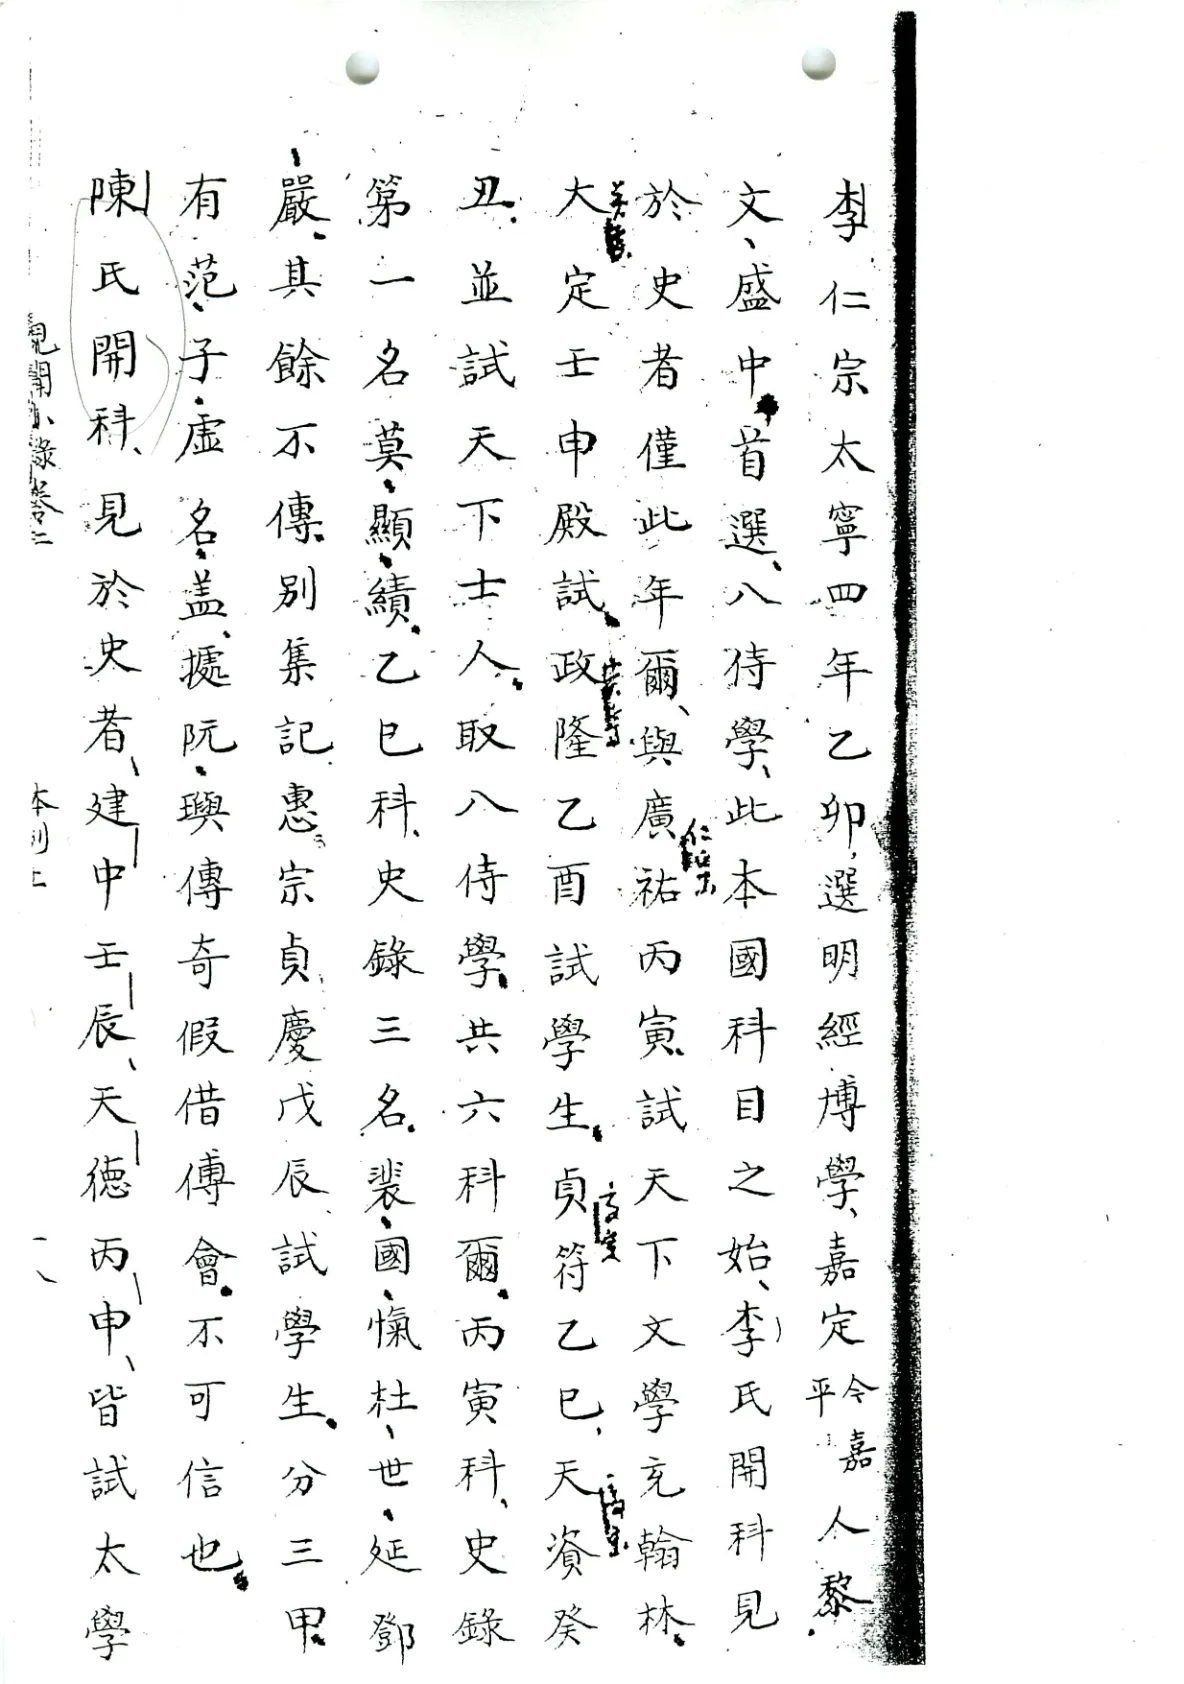 李仁宗太寧四年乙卯選明經博學嘉定今嘉平人黎
文盛中首選入侍學此本國科目之始李氏開科見
於史者僅此年爾與廣祐丙寅試天下文學充翰林
大定壬申殿試政隆乙酉試學生貞符乙巳天資癸
丑並試天下士人取入侍學共六科爾丙寅科史錄
第一名莫顯績乙巳科史錄三名裴國愾杜世延鄧
嚴其餘不傳別集記惠宗貞慶戊辰試學生分三甲
有范子虛名盖據阮璵傳奇假借傅會不可信也
陳氏開科見於史者建中壬辰天德丙申皆試太學
見聞小錄卷二
本刻上
一八
仁宗
英宗
高宗
高宗